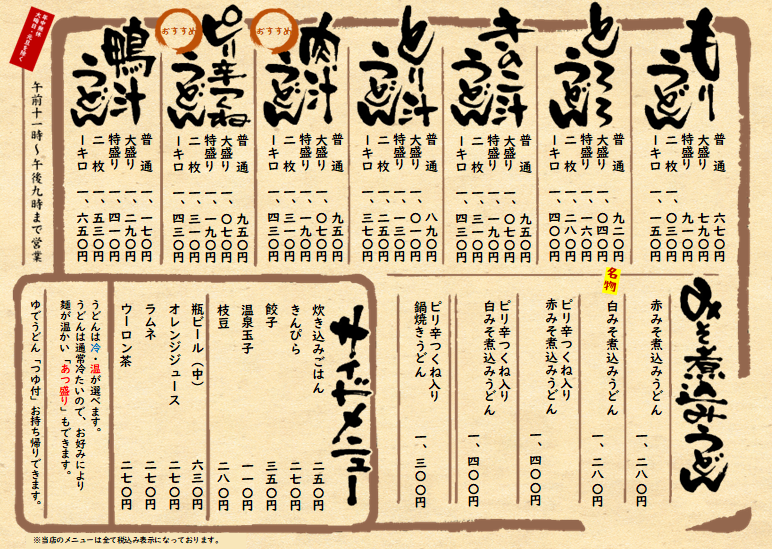 もりうどん
普通 六七〇円
大盛り 七九〇円
特盛り 九一〇円
二枚 一、〇三〇円
一キロ 一、一五〇円
とろろうどん
普通 九二〇円
大盛り 一、〇四〇円
特盛り 一、一六〇円
二枚 一、二八〇円
一キロ 一、四〇〇円
きのこ汁うどん
普通 九五〇円
大盛り 一、〇七〇円
特盛り 一、一九〇円
二枚 一、三一〇円
一キロ 一、四三〇円
とり汁うどん
普通 八九〇円
大盛り 一、〇一〇円
特盛り 一、一三〇円
二枚 一、二五〇円
一キロ 一、三七〇円
おすすめ
肉汁うどん
普通 九五〇円
大盛り 一、〇七〇円
特盛り 一、一九〇円
二枚 一、三一〇円
一キロ 一、四三〇円
おすすめ
ピリ辛つくねうどん
普通 九五〇円
大盛り 一、〇七〇円
特盛り 一、一九〇円
二枚 一、三一〇円
一キロ 一、四三〇円
鴨汁うどん
普通 一、一七〇円
大盛り 一、二九〇円
特盛り 一、四一〇円
二枚 一、五三〇円
一キロ 一、六五〇円
年中無休
火曜日・元旦を除く
午前十一時〜午後九時まで営業
みそ煮込みうどん
赤みそ煮込みうどん 一、二八〇円
名物
白みそ煮込みうどん 一、二八〇円
ピリ辛つくね入り
赤みそ煮込みうどん 一、四〇〇円
ピリ辛つくね入り
白みそ煮込みうどん 一、四〇〇円
ピリ辛つくね入り
鍋焼きうどん 一、三〇〇円
サイドメニュー
炊き込みごはん 二五〇円
きんぴら 二七〇円
餃子 三五〇円
温泉玉子 一一〇円
枝豆 二八〇円
瓶ビール（中） 六三〇円
オレンジジュース 二七〇円
ラムネ 二七〇円
ウーロン茶 二七〇円
うどんは冷・温が選べます。
うどんは通常冷たいので、お好みにより
麺が温かい「あつ盛り」もできます。
ゆでうどん「つゆ付」お持ち帰りできます。
※当店のメニューは全て税込み表示になっております。